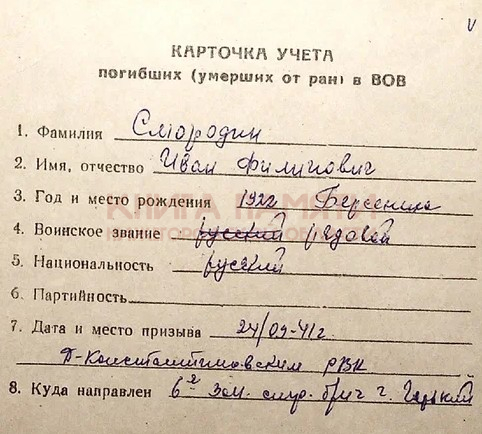 V
КАРТОЧКА УЧЕТА
погибших (умерших от ран) в ВОВ
1. Фамилия Смородин
2. Имя, отчество Иван Филипович
3. Год и место рождения 1922 Берсеника
КНИГА ПАМЯТИ
4. Воинское звание русский рядовой
5. Национальность русский
6. Партийность
7. Дата и место призыва 24/09-41г
Д-Константиновским РВК
8. Куда направлен 6я зап. стр. бриг г. Горький